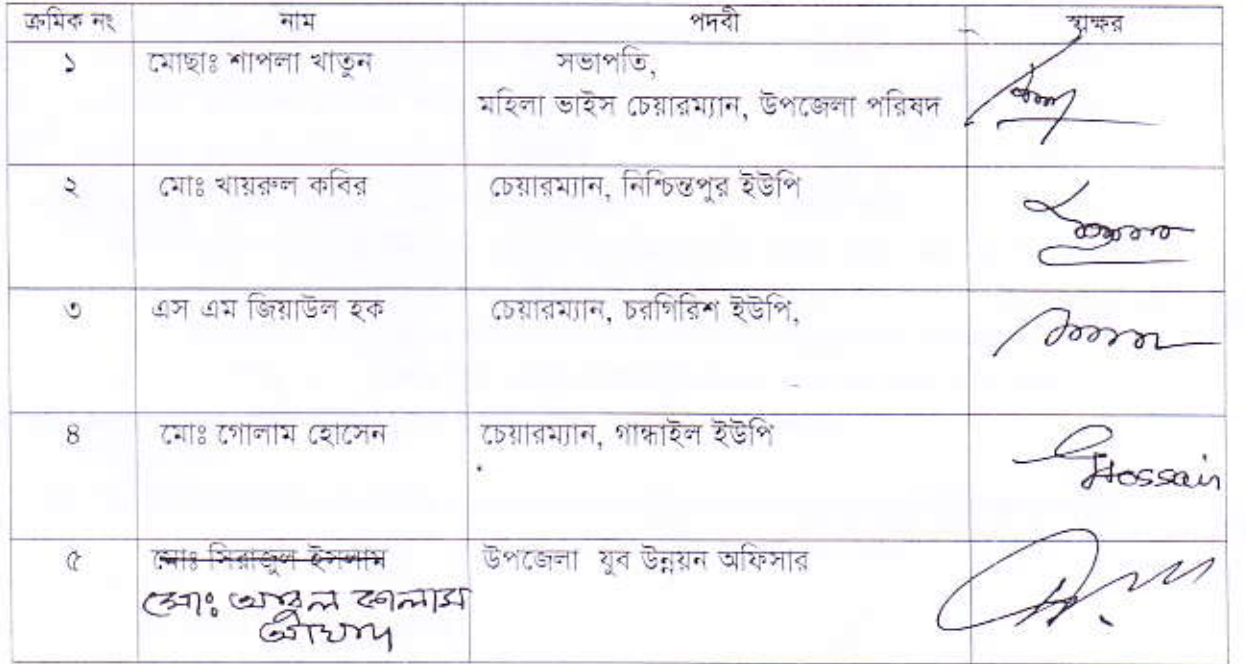 ক্রমিক নং নাম পদবী স্বাক্ষর
১ মোছাঃ শাপলা খাতুন সভাপতি,
মহিলা ভাইস চেয়ারম্যান, উপজেলা পরিষদ
২ মোঃ খায়রুল কবির চেয়ারম্যান, নিশ্চিন্তপুর ইউপি
৩ এস এম জিয়াউল হক চেয়ারম্যান, চরগিরিশ ইউপি,
৪ মোঃ গোলাম হোসেন চেয়ারম্যান, গান্ধাইল ইউপি
Hossain
৫ মোঃ সিরাজুল ইসলাম উপজেলা যুব উন্নয়ন অফিসার
মোঃ আবুল কালাম
আযাদ